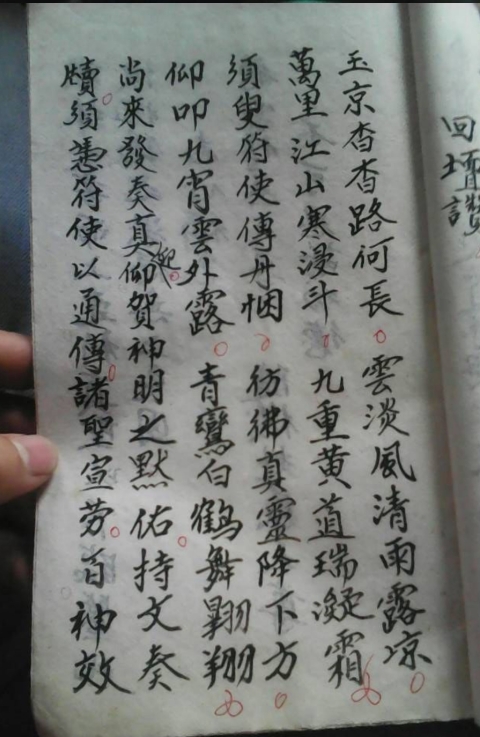 回壇讚
玉京杳杳路何長 雲淡風清雨露凉
萬里江山寒漫斗 九重黄道瑞凝霜
須臾符使傳丹悃 彷彿真靈降下方
仰叩九宵雲外露 青鸞白鶴舞翱翔
尚來發奏真仰賀神明之默佑持文奏
牘須憑符使以通傳諸聖宣劳百神效